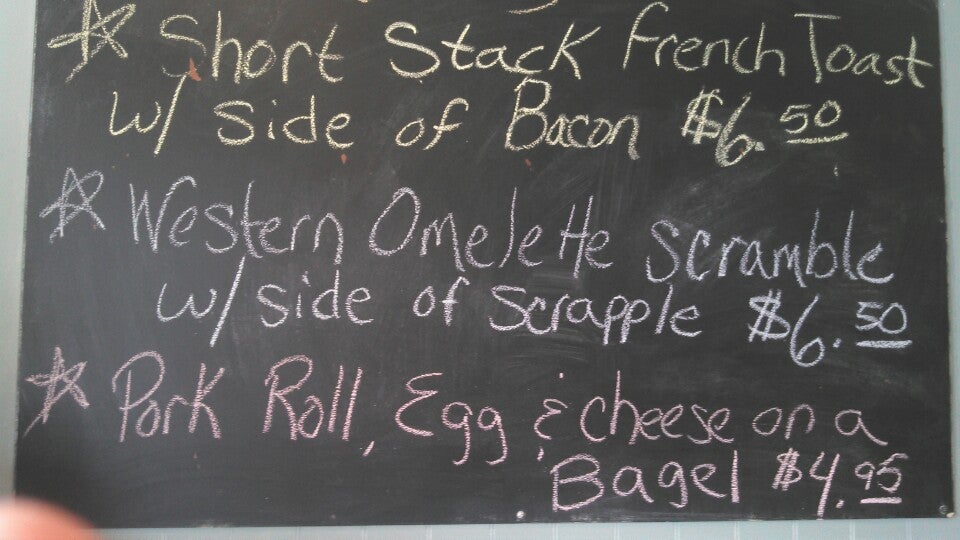 ☆ Short Stack French Toast
w/ Side of Bacon $6.50
☆ Western Omelette Scramble
w/ side of Scrapple $6.50
☆ Pork Roll, Egg & cheese on a
Bagel $4.95